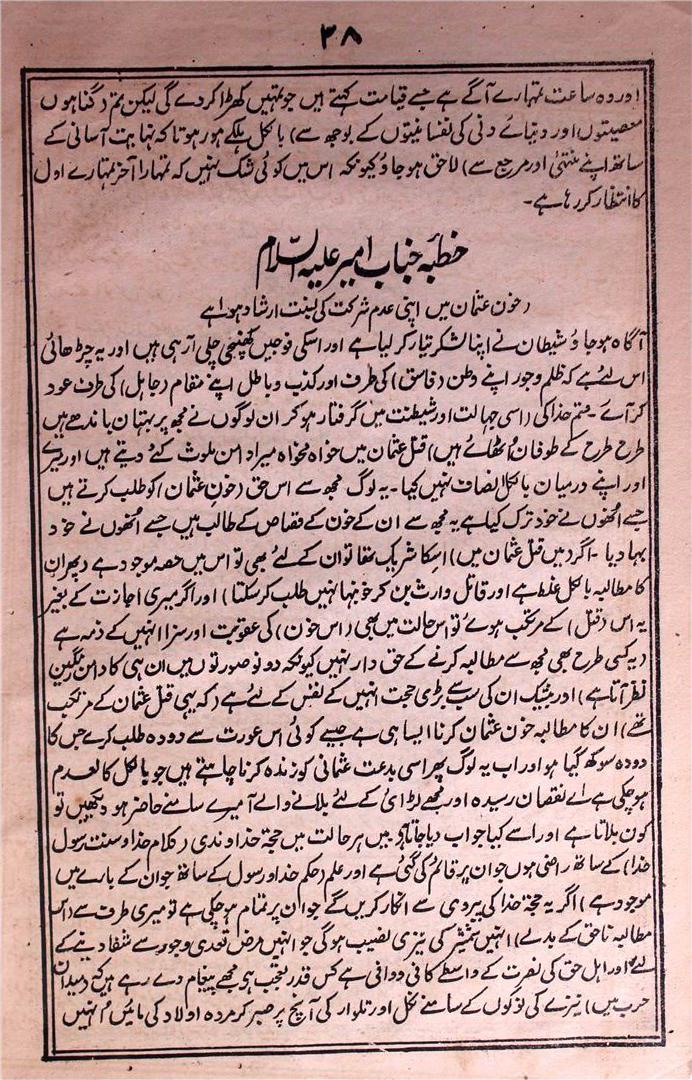 ۳۸
اور وہ ساعت تمہارے آگے ہے جسے قیامت کہتے ہیں جو تمہیں کھڑا کردے گی لیکن تم (گناہوں
معصیتوں اور دنیائے دنی کی نفسانیتوں کے بوجھ سے) بالکل ہلکے ہو رہو تاکہ نہایت آسانی کے
ساتھ اپنے منتہیٰ اور مرجع سے) لاحق ہوجاؤ کیونکہ اس میں کوئی شک نہیں کہ تمہارا آخر تمہارے اول
کا انتظار کررہا ہے۔
خطبہ جناب امیر علیہ السلام
(خون عثمان میں اپنی عدم شرکت کی نسبت ارشاد ہوا ہے
آگاہ ہوجاؤ شیطان نے اپنا لشکر تیار کرلیا ہے اور اسکی فوجیں کھنچی چلی آرہی ہیں اور یہ چڑھائی
اس لئے ہے کہ ظلم وجور اپنے وطن (فاسق) کی طرف اور کذب وباطل اپنے مقام (جاہل) کی طرف عود
کر آئے۔ قسم خدا کی (اسی جہالت اور شیطنت میں گرفتار ہوکر ان لوگوں نے مجھ پر بہتان باندھے ہیں
طرح طرح کے طوفان اُٹھائے ہیں) قتل عثمان میں خواہ مخواہ میرا دامن ملوث کئے دیتے ہیں اور میرے
اور اپنے درمیان بالکل انصاف نہیں کیا۔ یہ لوگ مجھ سے اس حق (خون عثمان) کو طلب کرتے ہیں
جسے انھوں نے خود ترک کیا ہے یہ مجھ سے ان کے خون کے قصاص کے طالب ہیں جسے انھوں نے خود
بہا دیا۔ اگر (میں قتل عثمان میں) انکا شریک تھا تو ان کے لئے بھی تو اس میں حصہ موجود ہے (پھر ان
کا مطالبہ بالکل غلط ہے اور قاتل وارث بن کر خونبہا نہیں طلب کرسکتا) اور اگر میری اجازت کے بغیر
یہ اس (قتل) کے مرتکب ہوئے تو اس حالت میں بھی (اس خون) کی عقوبت اور سزا انہیں کے ذمہ ہے
(یہ کسی طرح بھی مجھ سے مطالبہ کرنے کے حق دار نہیں کیونکہ دونو صورتوں میں ان ہی کا دامن رنگین
نظر آتا ہے) اور بیشک ان کی سب سے بڑی حجت انہیں کے نفس کے لئے ہے (کہ یہی قتل عثمان کے مرتکب
تھے) ان کا مطالبہ خون عثمان کرنا ایسا ہی ہے جیسے کوئی اس عورت سے دودھ طلب کرے جس کا
دودھ سوکھ گیا ہو اور اب یہ لوگ پھر اسی بدعت عثمانی کو زندہ کرنا چاہتے ہیں جو بالکل کالعدم
ہوچکی ہے اے نقصان رسیدہ اور مجھے لڑائی کے لئے بلانے والے آ میرے سامنے حاضر ہو دیکھیں تو
کون بلاتا ہے اور اسے کیا جواب دیا جاتا ہے میں ہر حالت میں حجۃ خداوندی (کلام خدا وسنت رسول
خدا) کے ساتھ راضی ہوں جو ان پر قائم کی گئی ہے اور علم (حکم خدا ورسول کے ساتھ جو ان کے بارے میں
موجود ہے) اگر یہ حجۃ خدا کی پیروی سے انکار کریں گے جو ان پر تمام ہوچکی ہے تو میری طرف سے (اس
مطالبہ ناحق کے بدلے) انہیں شمشیر کی تیزی نصیب ہوگی جو انہیں مرض تعدی وجور سے شفا دینے کے
لئے اور اہل حق کی نصرت کے واسطے کافی ووافی ہے کس قدر تعجب ہے یہی مجھے پیغام دے رہے ہیں کہ (میدان
حرب میں) نیزے کی نوکوں کے سامنے نکل اور تلوار کی آنچ پر صبر کر مردہ اولاد کی مائیں انہیں